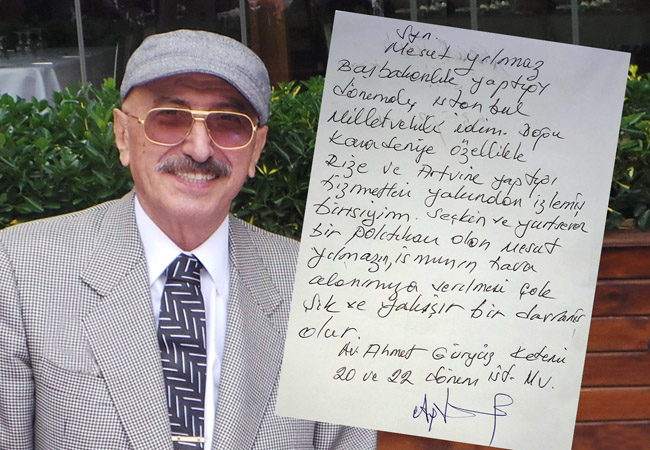 Syn.
Mesut Yılmaz
Başbakanlık yaptığı
dönemde istanbul
Milletvekili idim. Doğu
Karadenize özellikle
Rize ve Artvine yaptığı
hizmetleri yakından izlemiş
birisiyim. Seçkin ve yurtsever
bir politikacı olan Mesut
yılmazın, isminin hava
alanımıza verilmesi çok
şık ve yakışır bir davranış
olur.
Av. Ahmet Güryüz Ketenci
20 ve 22 dönem ist. Mv.